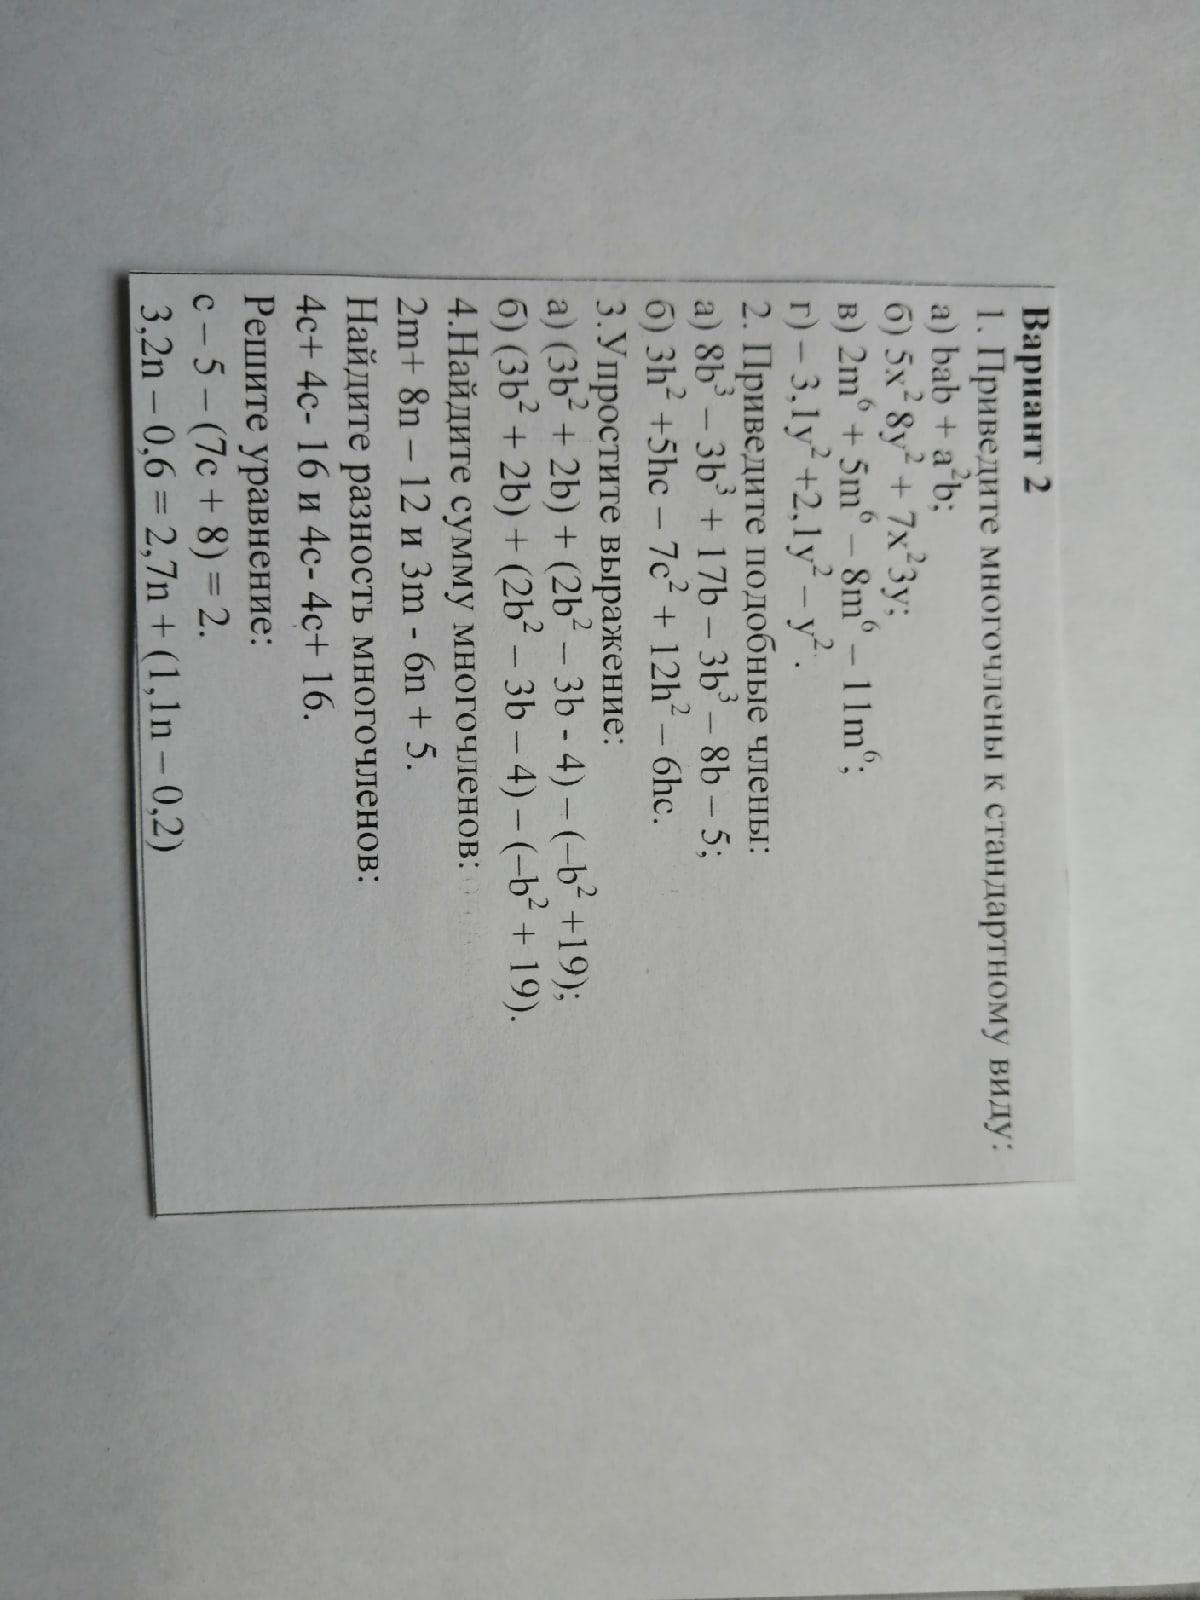 Вариант 2
1. Приведите многочлены к стандартному виду:
а) bab + a²b;
б) 5x² 8y² + 7x² 3y;
в) 2m⁶ + 5m⁶ – 8m⁶ – 11m⁶;
г) – 3,1y² +2,1y² – y² .
2. Приведите подобные члены:
а) 8b³ – 3b³ + 17b – 3b³ – 8b – 5;
б) 3h² +5hc – 7c² + 12h² – 6hc.
3.Упростите выражение:
а) (3b² + 2b) + (2b² – 3b - 4) – (–b² +19);
б) (3b² + 2b) + (2b² – 3b – 4) – (–b² + 19).
4.Найдите сумму многочленов:
2m+ 8n – 12 и 3m - 6n + 5.
Найдите разность многочленов:
4c+ 4c- 16 и 4c- 4c+ 16.
Решите уравнение:
c – 5 – (7c + 8) = 2.
3,2n – 0,6 = 2,7n + (1,1n – 0,2)